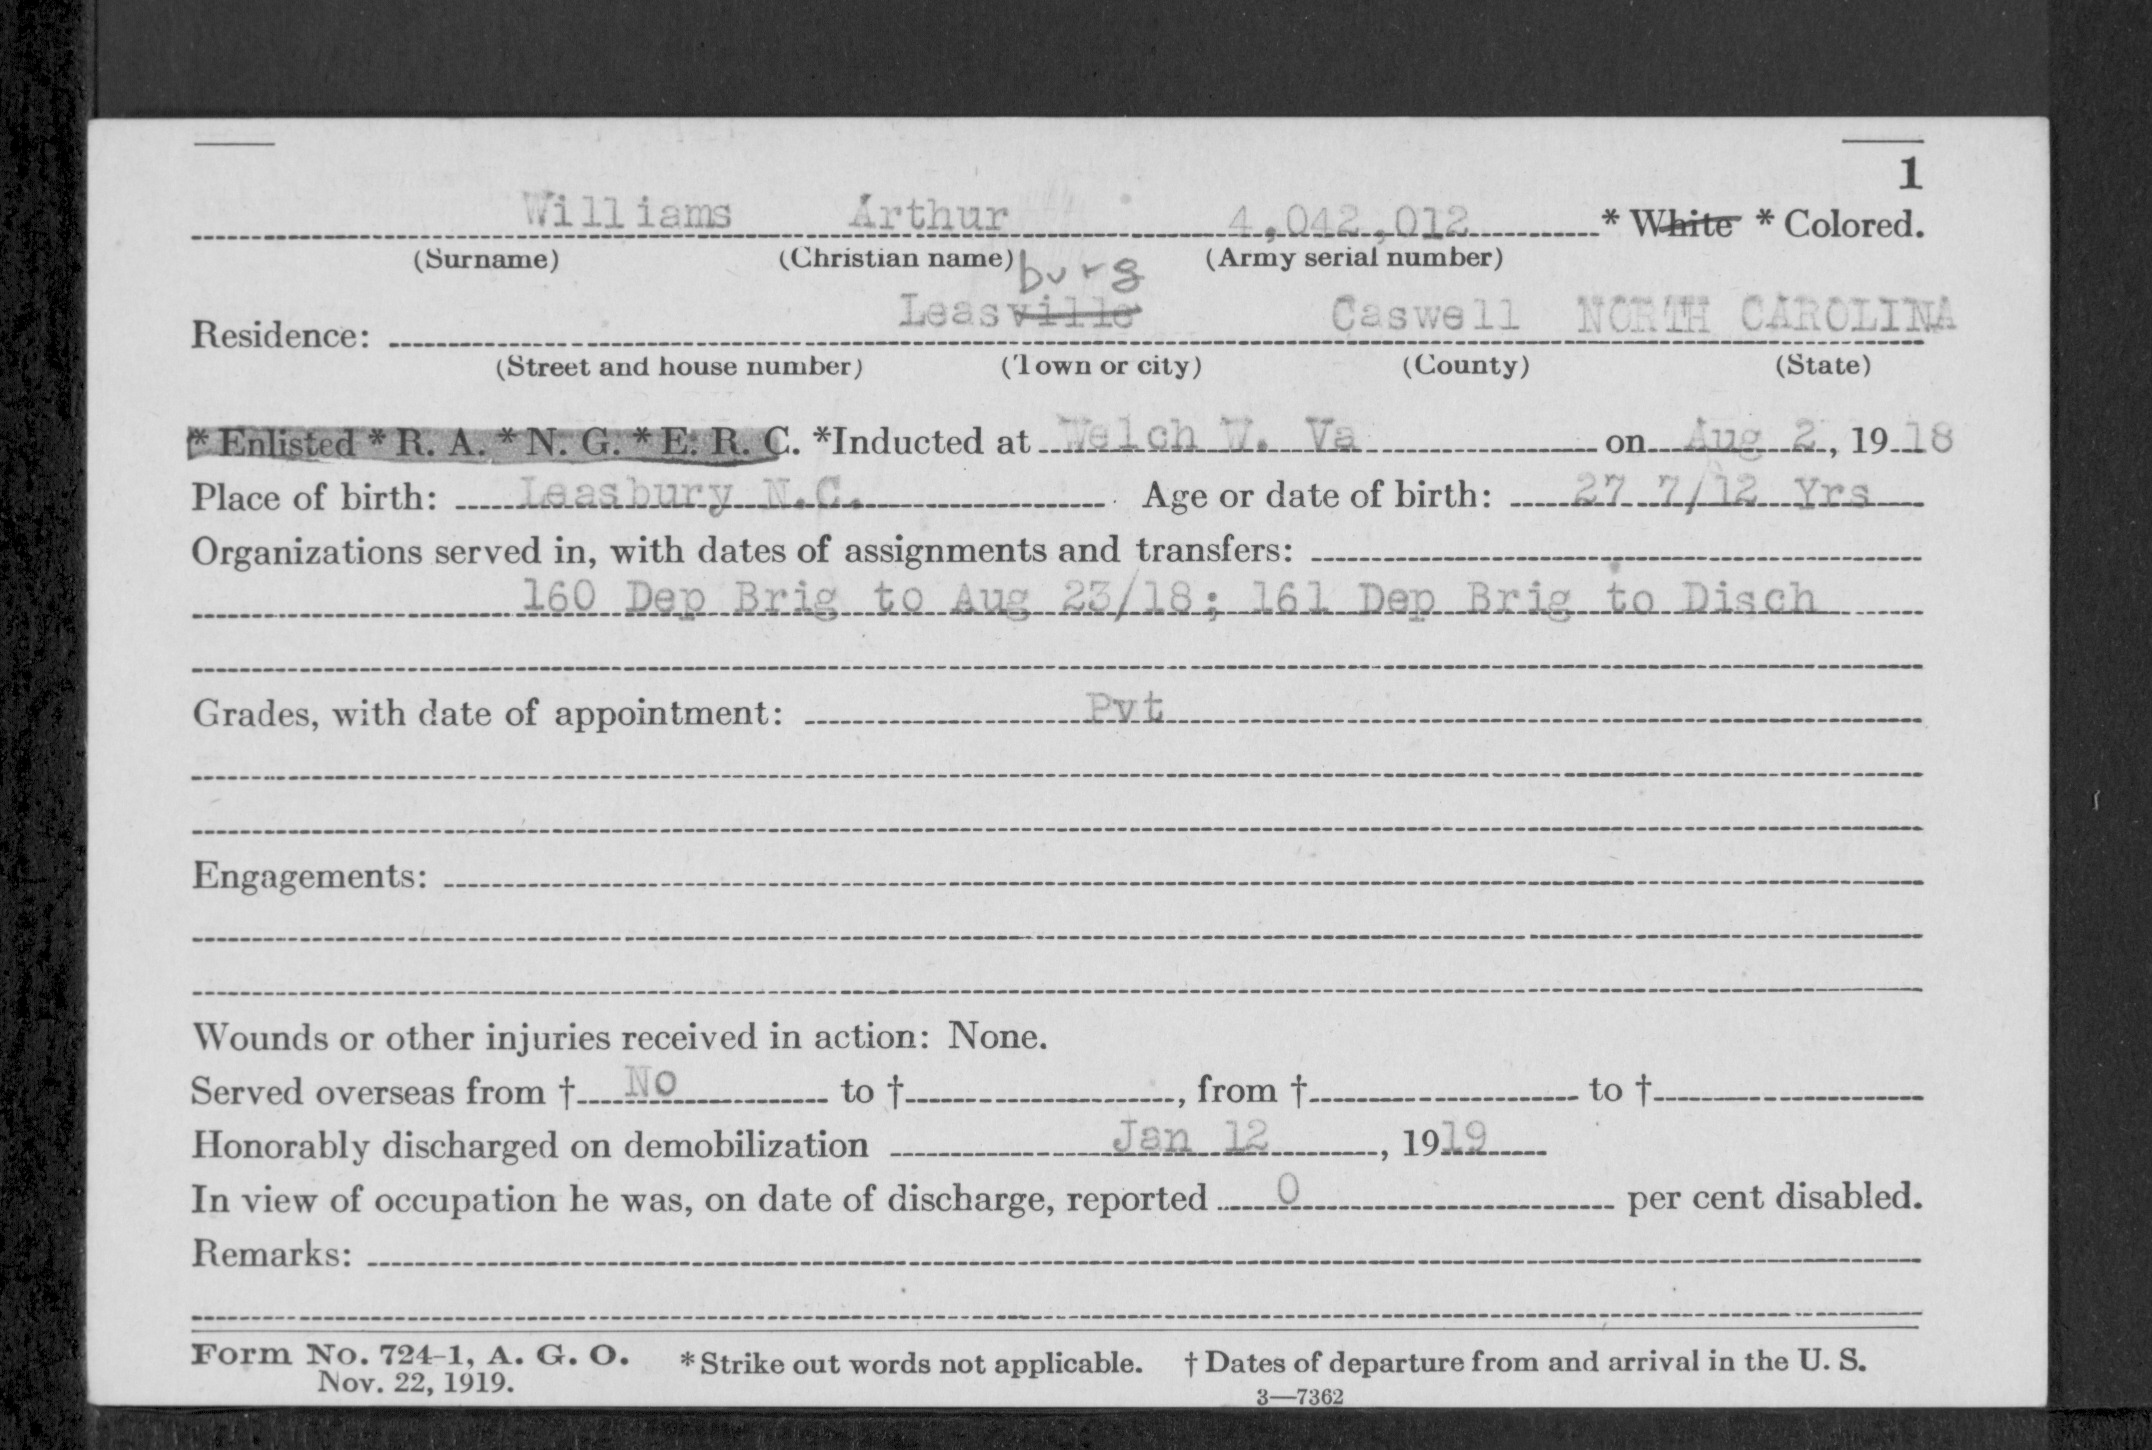 1
Williams Arthur 4,042,012 * White * Colored.
(Surname) (Christian name) (Army serial number)
burg
Residence: Leasville Caswell NORTH CAROLINA
(Street and house number) (Town or city) (County) (State)
* Enlisted * R. A. * N. G. * E. R. C. *Inducted at Welch W. Va on Aug 2, 1918
Place of birth: Leasbury N.C. Age or date of birth: 27 7/12 Yrs
Organizations served in, with dates of assignments and transfers:
160 Dep Brig to Aug 23/18; 161 Dep Brig to Disch
Grades, with date of appointment: Pvt
Engagements:
Wounds or other injuries received in action: None.
Served overseas from † No to †, from † to †
Honorably discharged on demobilization Jan 12, 1919
In view of occupation he was, on date of discharge, reported 0 per cent disabled.
Remarks:
Form No. 724-1, A. G. O. * Strike out words not applicable. † Dates of departure from and arrival in the U. S.
Nov. 22, 1919.
3—7362